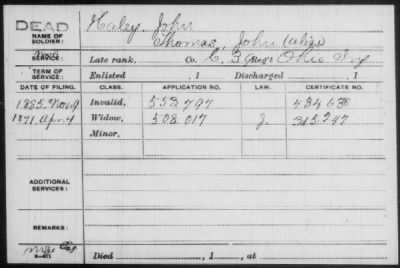 DEAD
Haley John
NAME OF SOLDIER: Thomas, John (alias
SERVICE: Late rank, Co. C, 39 Reg't Ohio Inf
TERM OF SERVICE: Enlisted , 1 Discharged , 1
DATE OF FILING. CLASS. APPLICATION NO. LAW. CERTIFICATE NO.
1885. Nov. 9 Invalid, 553797 434638
Apr. 4 Widow, 508 017 J. 315247
Minor,
ADDITIONAL SERVICES:
REMARKS:
Died , 1 , at